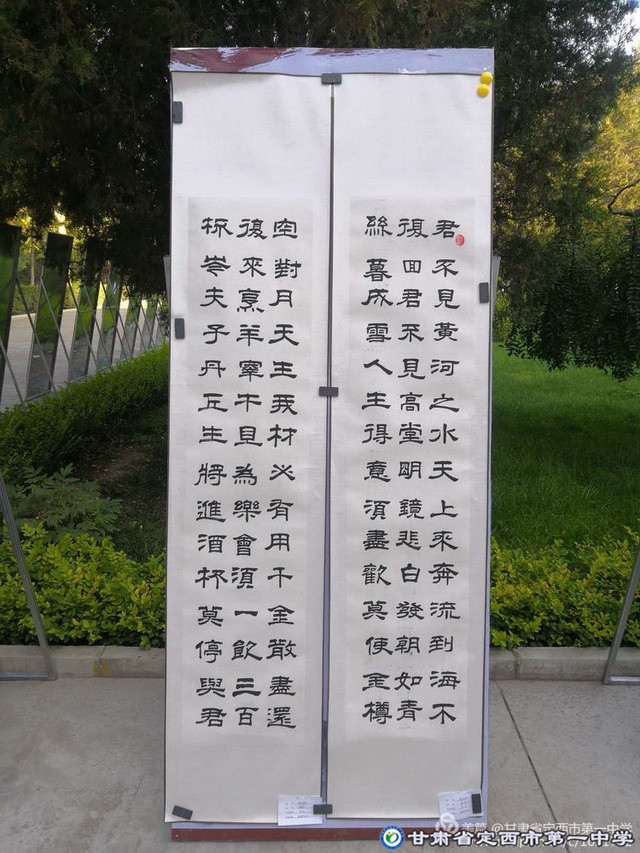 君不見黃河之水天上來奔流到海不
復回君不見高堂明鏡悲白發朝如青
絲暮成雪人生得意須盡歡莫使金樽
空對月天生我材必有用千金散盡還
復來烹羊宰牛且為樂會須一飲三百
杯岑夫子丹丘生將進酒杯莫停與君
美篇 @甘肃省定西市第一中学
甘肃省定西市第一中学